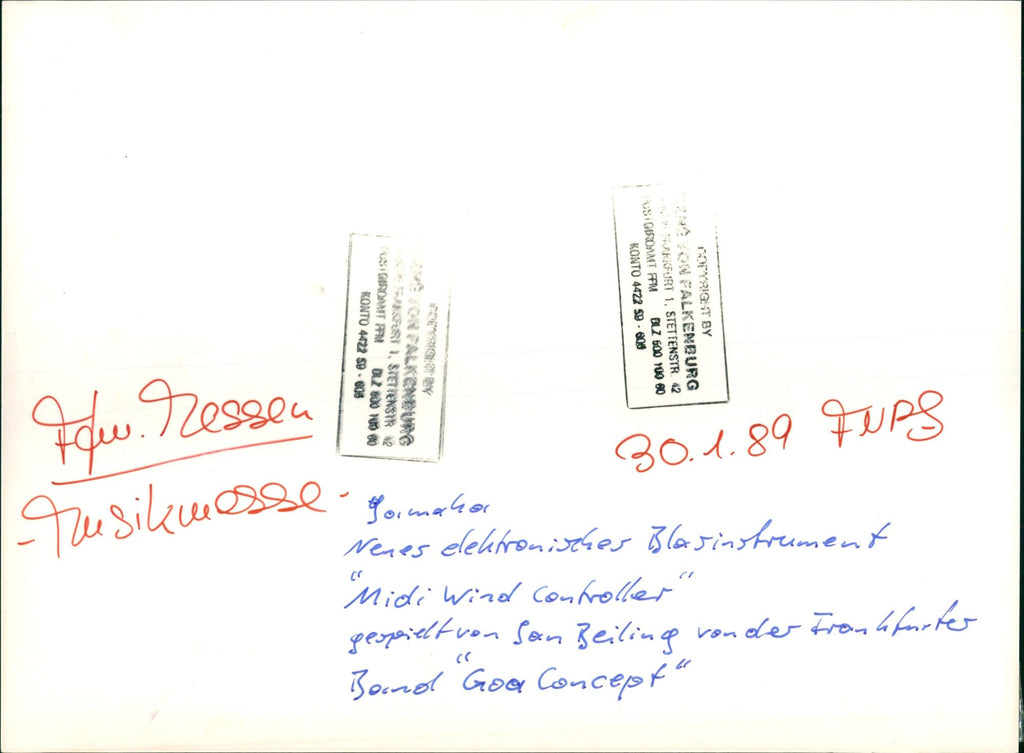 COPYRIGHT BY
VON FALKENBURG
FRANKFURT 1, STETTENSTR. 42
POSTGIROAMT FFM BLZ 500 100 60
KONTO 4422 59 - 606
COPYRIGHT BY
VON FALKENBURG
FRANKFURT 1, STETTENSTR. 42
POSTGIROAMT FFM BLZ 500 100 60
KONTO 4422 59 - 606
Ffm. Messen
- Musikmesse -
30.1.89 FNPS
Yamaha
Neues elektronisches Blasinstrument
"Midi Wind Controller"
gespielt von Jan Beiling von der Frankfurter
Band "Goa Concept"